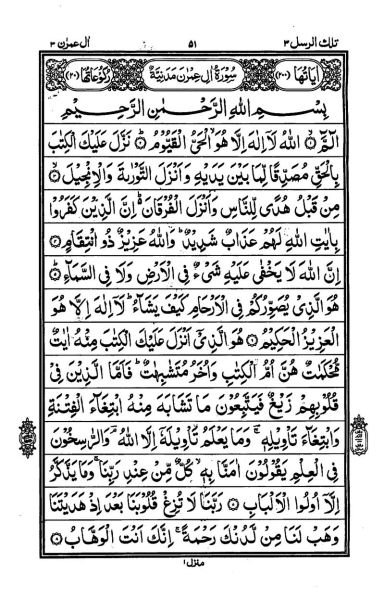 تلك الرسل ٣ ٥١ اٰل عمرٰن ٣
اٰيَاتُهَا (٢٠٠) سُوْرَةُ اٰلِ عِمْرٰنَ مَدَنِيَّةٌ رُكُوْعَاتُهَا (٢٠)
بِسْمِ اللّٰهِ الرَّحْمٰنِ الرَّحِيْمِ
الٓمّٓ ۙ۝١ اللّٰهُ لَاۤ اِلٰهَ اِلَّا هُوَ الْحَيُّ الْقَيُّوْمُ ؕ۝٢ نَزَّلَ عَلَيْكَ الْكِتٰبَ
بِالْحَقِّ مُصَدِّقًا لِّمَا بَيْنَ يَدَيْهِ وَاَنْزَلَ التَّوْرٰىةَ وَالْاِنْجِيْلَ ۙ۝٣
مِنْ قَبْلُ هُدًى لِّلنَّاسِ وَاَنْزَلَ الْفُرْقَانَ ؕ اِنَّ الَّذِيْنَ كَفَرُوْا
بِاٰيٰتِ اللّٰهِ لَهُمْ عَذَابٌ شَدِيْدٌ ؕ وَاللّٰهُ عَزِيْزٌ ذُو انْتِقَامٍ ؕ۝٤
اِنَّ اللّٰهَ لَا يَخْفٰى عَلَيْهِ شَيْءٌ فِي الْاَرْضِ وَلَا فِي السَّمَآءِ ؕ۝٥
هُوَ الَّذِيْ يُصَوِّرُكُمْ فِي الْاَرْحَامِ كَيْفَ يَشَآءُ ؕ لَاۤ اِلٰهَ اِلَّا هُوَ
الْعَزِيْزُ الْحَكِيْمُ ۝٦ هُوَ الَّذِيْۤ اَنْزَلَ عَلَيْكَ الْكِتٰبَ مِنْهُ اٰيٰتٌ
مُّحْكَمٰتٌ هُنَّ اُمُّ الْكِتٰبِ وَاُخَرُ مُتَشٰبِهٰتٌ ؕ فَاَمَّا الَّذِيْنَ فِيْ
قُلُوْبِهِمْ زَيْغٌ فَيَتَّبِعُوْنَ مَا تَشَابَهَ مِنْهُ ابْتِغَآءَ الْفِتْنَةِ
وَابْتِغَآءَ تَاْوِيْلِهٖ ۚ وَمَا يَعْلَمُ تَاْوِيْلَهٗۤ اِلَّا اللّٰهُ ۘ وَالرّٰسِخُوْنَ
فِي الْعِلْمِ يَقُوْلُوْنَ اٰمَنَّا بِهٖ ۙ كُلٌّ مِّنْ عِنْدِ رَبِّنَا ۚ وَمَا يَذَّكَّرُ
اِلَّاۤ اُولُوا الْاَلْبَابِ ۝٧ رَبَّنَا لَا تُزِغْ قُلُوْبَنَا بَعْدَ اِذْ هَدَيْتَنَا
وَهَبْ لَنَا مِنْ لَّدُنْكَ رَحْمَةً ۚ اِنَّكَ اَنْتَ الْوَهَّابُ ۝٨
منزل ١